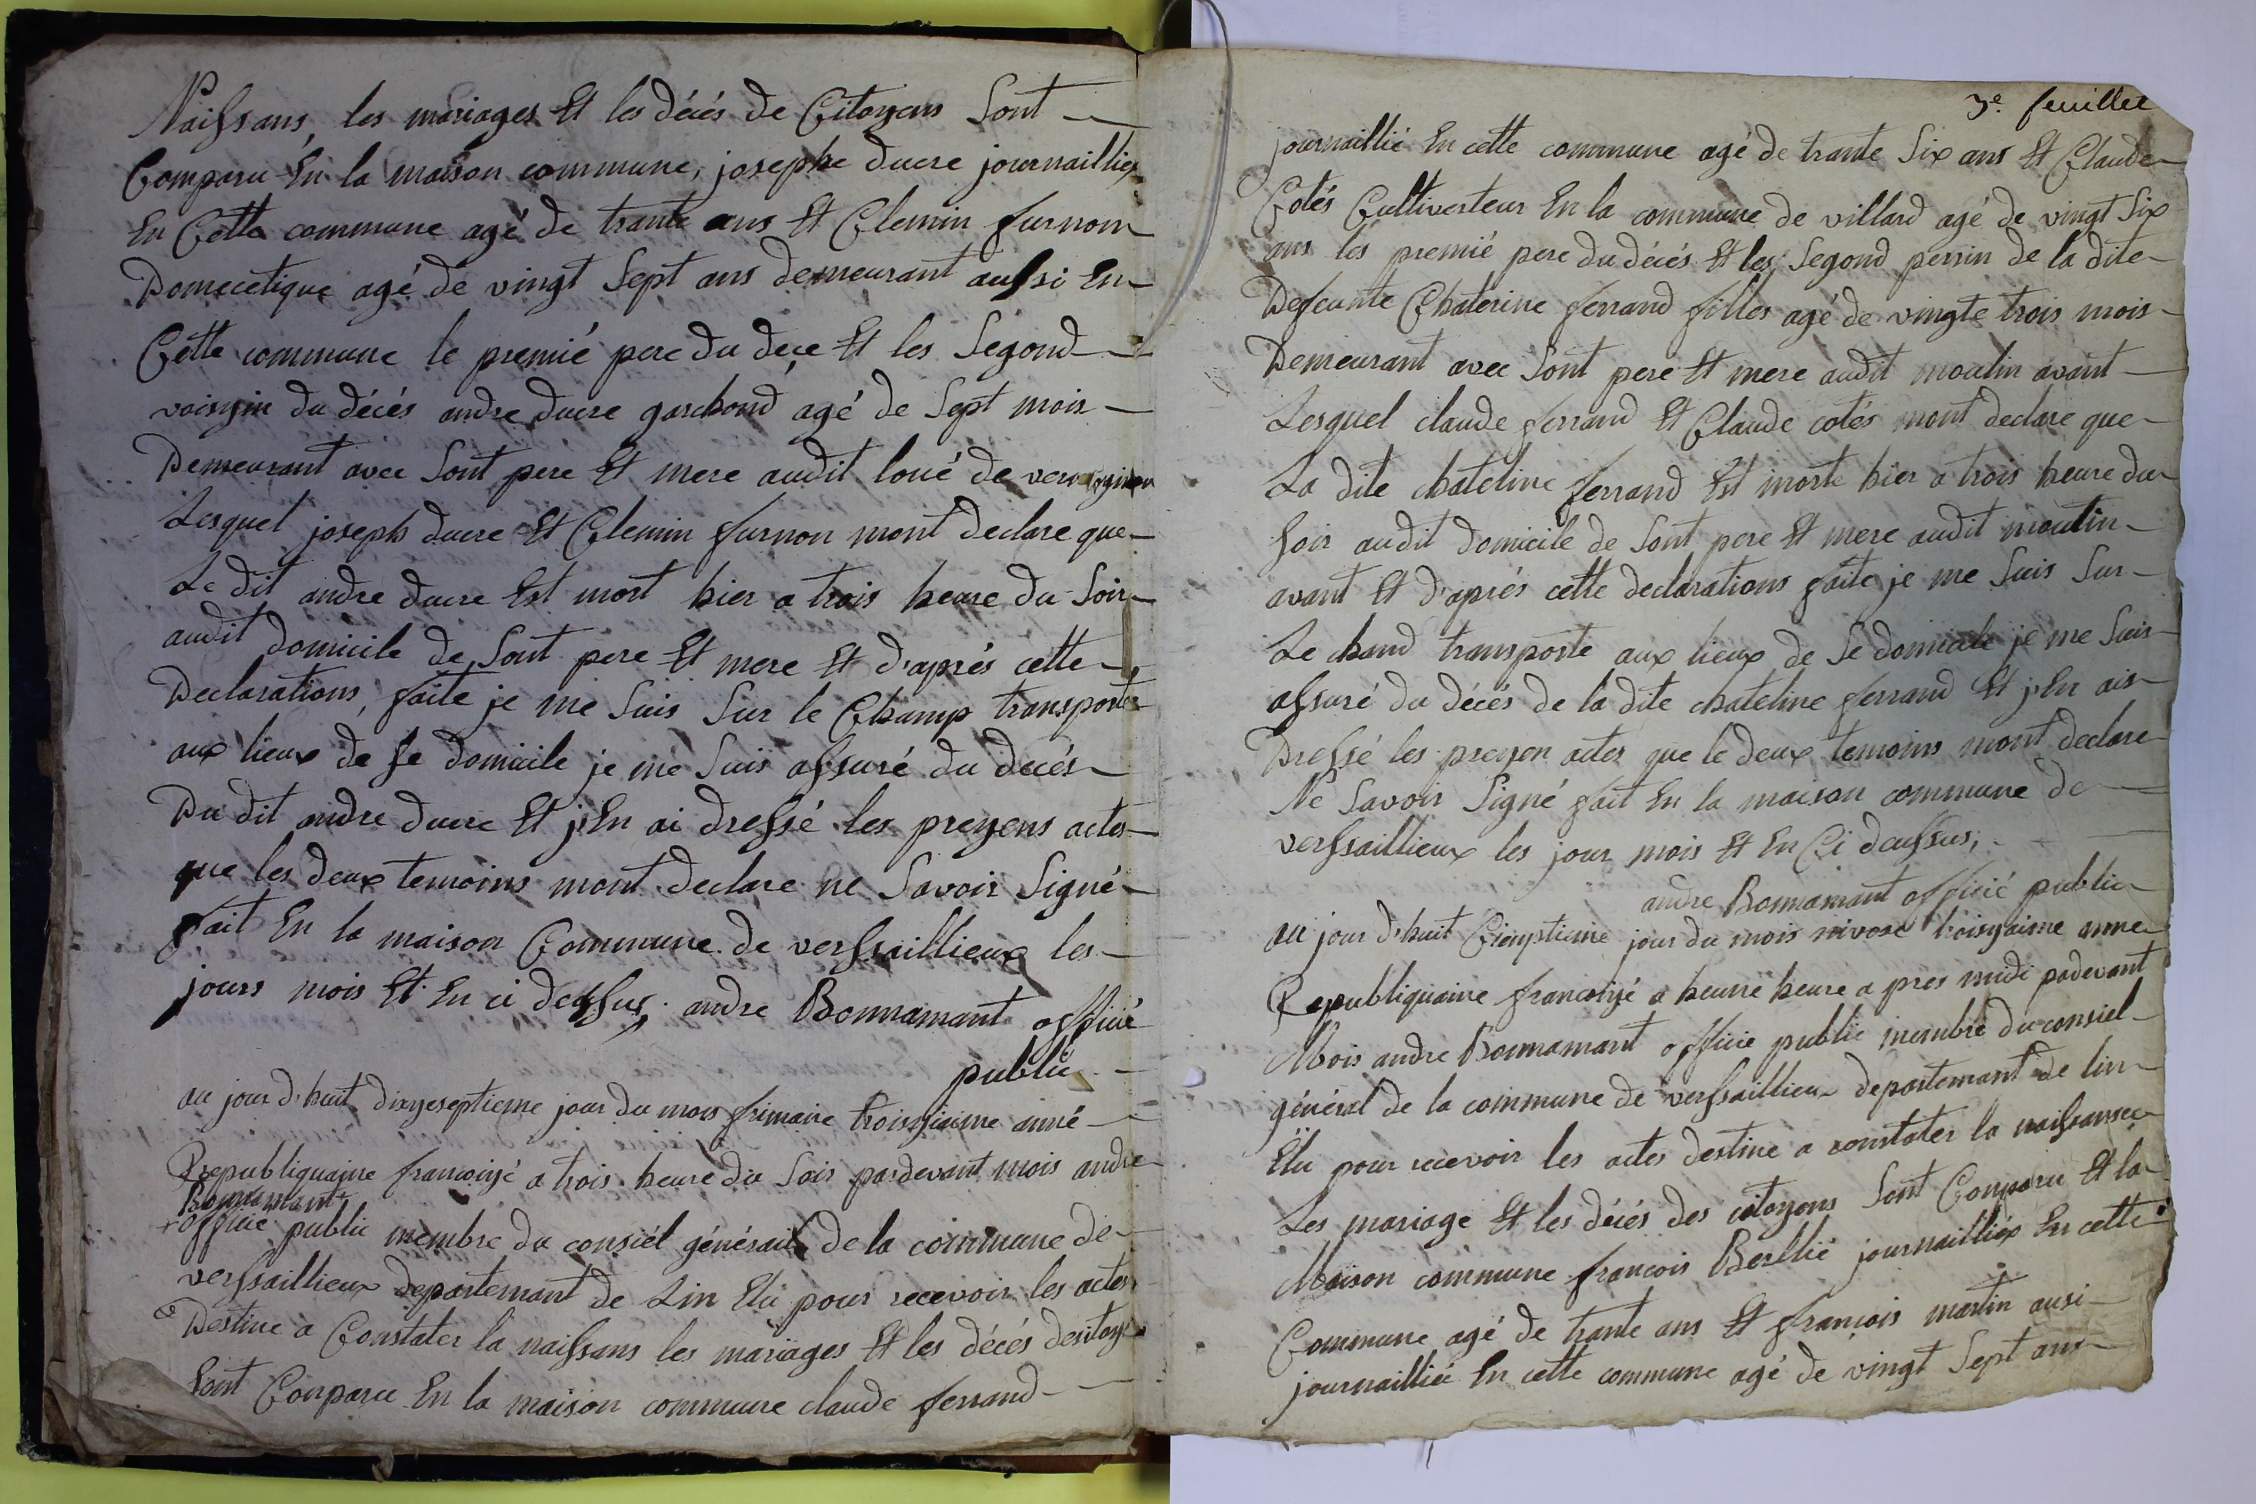 Naissans, les mariages Et les décés de Citoyens Sont
Comparu En la maison commune, josephe ducre journaillier
En Cette commune agé de trante ans Et Clemin furnon
Domecetique agé de vingt Sept ans demeurant aussi En
Cette commune le premié pere du dece Et les Segond
voisyin du décés andre ducre garchond agé de Sept mois
Demeurant avec Sont pere Et mere audit loué de
Lesquel joseph ducre Et Clemin furnon mont declare que
Le dit andre ducre Est mort hier a trois heure du Soir
audit domicile de Sont pere Et mere Et d'aprés cette
Declarations, faite je me Suis Sur le Champ transporter
aux lieux de se domicile je me Suis assuré du decés
Du dit andre ducre Et j'En ai dressé les preyens actes
que les deux temoins mont declare ne Savoir Signé
fait En la maison Commune de verssaillieux les
jours mois Et En ci dessus, andre Bonnamant officié
public
au jour d'huit dixyeseptieme jour du mois frimaire troisyiaime anné
Republiquaine francoiyé a trois heure du Soir pardevant mois andre
Bonnamant
+ officié public membre du consiel générail de la commune de
verssaillieux departemant de Lin Elu pour recevoir les actes
Destine a Constater la naissans les mariages Et les décés des citoy
Sont Comparu En la maison commune claude ferrand
3e. feuillet
journaillié En cette commune agé de trante Six ans Et Claude
Cotés Cultiverteur En la commune de villard agé de vingt Six
ans les premié pere du décés Et les Segond perrin de la dite
Defeunte Chaterine ferrand filles agé de vingte trois mois
Demeurant avec Sont pere Et mere audit moulin avant
Lesquel claude ferrand Et Claude cotés mont declare que
La dite chateline ferrand Est morte hier a trois heure du
soir audit domicile de Sont pere Et mere audit moulin
avant Et d'aprés cette declarations faite je me Suis Sur
Le chand transporte aux lieux de Se domicile je me Suis
assuré du décés de la dite chateline ferrand Et j'En ais
Dressé les preyen actes que le deux temoins mont declare
Ne Savoir Signé fait En la maison commune de
verssaillieux les jour mois Et En Ci deussus,
andre Bonnamant officié public
au jour d'huit Cienptieme jour du mois nivose troisyaime anne
Republiquaine francoiyé a heune heure a pres midi padevant
Mois andre Bonnamant officie public membre du consiel
général de la commune de verssaillieu departemant de lin
Elu pour recevoir les actes destine a constater la naissansce
Les mariage Et les décés des citoyens Sont Comparu Et la
Maison commune francois Berllié journailliex En cette
Commune agé de trante ans Et francois martin ausi
journaillié En cette commune agé de vingt Sept ans